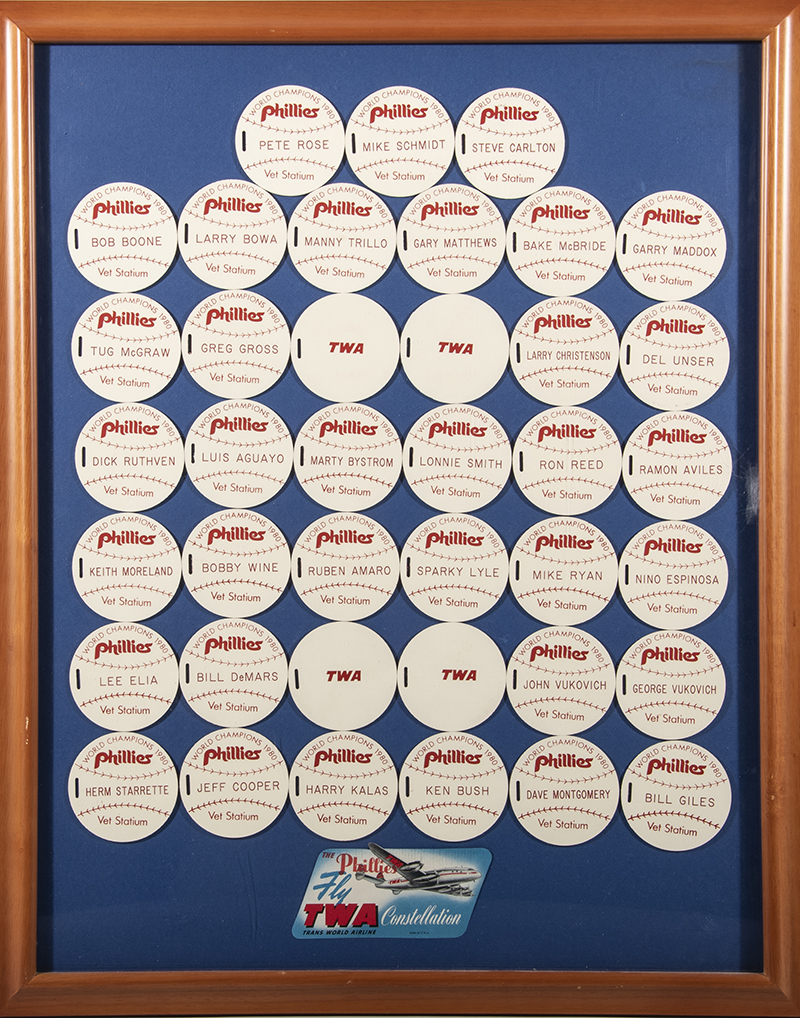 WORLD CHAMPIONS 1980
Phillies
PETE ROSE
Vet Statium
WORLD CHAMPIONS 1980
Phillies
MIKE SCHMIDT
Vet Statium
WORLD CHAMPIONS 1980
Phillies
STEVE CARLTON
Vet Statium
WORLD CHAMPIONS 1980
Phillies
BOB BOONE
Vet Statium
WORLD CHAMPIONS 1980
Phillies
LARRY BOWA
Vet Statium
WORLD CHAMPIONS 1980
Phillies
MANNY TRILLO
Vet Statium
WORLD CHAMPIONS 1980
Phillies
GARY MATTHEWS
Vet Statium
WORLD CHAMPIONS 1980
Phillies
BAKE McBRIDE
Vet Statium
WORLD CHAMPIONS 1980
Phillies
GARRY MADDOX
Vet Statium
WORLD CHAMPIONS 1980
Phillies
TUG McGRAW
Vet Statium
WORLD CHAMPIONS 1980
Phillies
GREG GROSS
Vet Statium
TWA
TWA
WORLD CHAMPIONS 1980
Phillies
LARRY CHRISTENSON
Vet Statium
WORLD CHAMPIONS 1980
Phillies
DEL UNSER
Vet Statium
WORLD CHAMPIONS 1980
Phillies
DICK RUTHVEN
Vet Statium
WORLD CHAMPIONS 1980
Phillies
LUIS AGUAYO
Vet Statium
WORLD CHAMPIONS 1980
Phillies
MARTY BYSTROM
Vet Statium
WORLD CHAMPIONS 1980
Phillies
LONNIE SMITH
Vet Statium
WORLD CHAMPIONS 1980
Phillies
RON REED
Vet Statium
WORLD CHAMPIONS 1980
Phillies
RAMON AVILES
Vet Statium
WORLD CHAMPIONS 1980
Phillies
KEITH MORELAND
Vet Statium
WORLD CHAMPIONS 1980
Phillies
BOBBY WINE
Vet Statium
WORLD CHAMPIONS 1980
Phillies
RUBEN AMARO
Vet Statium
WORLD CHAMPIONS 1980
Phillies
SPARKY LYLE
Vet Statium
WORLD CHAMPIONS 1980
Phillies
MIKE RYAN
Vet Statium
WORLD CHAMPIONS 1980
Phillies
NINO ESPINOSA
Vet Statium
WORLD CHAMPIONS 1980
Phillies
LEE ELIA
Vet Statium
WORLD CHAMPIONS 1980
Phillies
BILL DeMARS
Vet Statium
TWA
TWA
WORLD CHAMPIONS 1980
Phillies
JOHN VUKOVICH
Vet Statium
WORLD CHAMPIONS 1980
Phillies
GEORGE VUKOVICH
Vet Statium
WORLD CHAMPIONS 1980
Phillies
HERM STARRETTE
Vet Statium
WORLD CHAMPIONS 1980
Phillies
JEFF COOPER
Vet Statium
WORLD CHAMPIONS 1980
Phillies
HARRY KALAS
Vet Statium
WORLD CHAMPIONS 1980
Phillies
KEN BUSH
Vet Statium
WORLD CHAMPIONS 1980
Phillies
DAVE MONTGOMERY
Vet Statium
WORLD CHAMPIONS 1980
Phillies
BILL GILES
Vet Statium
THE Phillies
Fly
TWA Constellation
TRANS WORLD AIRLINE